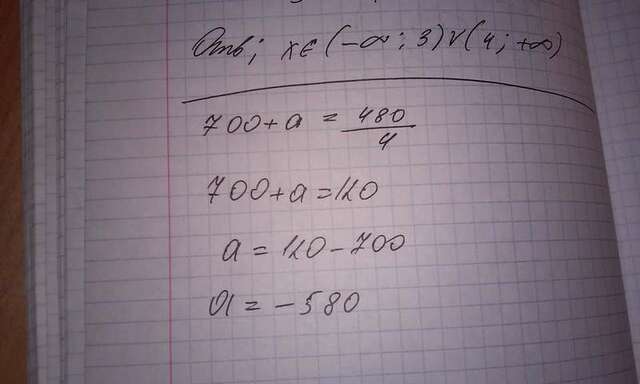 Отв; x∈(-∞; 3)∨(4; +∞)
700+a = 480/4
700+a=120
a = 120-700
a = -580